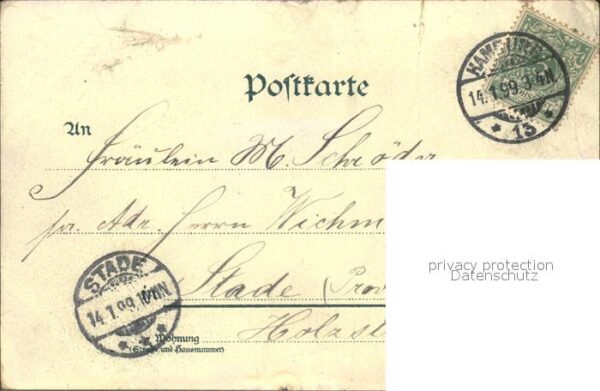 HAMBURG
14.1.99.3-4N
* 13 *
Postkarte
An
Fräulein M. Schröder
pr. Adr. Herrn Wichm
privacy protection
Datenschutz
STADE
14.1.99
Stade (Prov
Holzst
Wohnung
(Straße und Hausnummer)